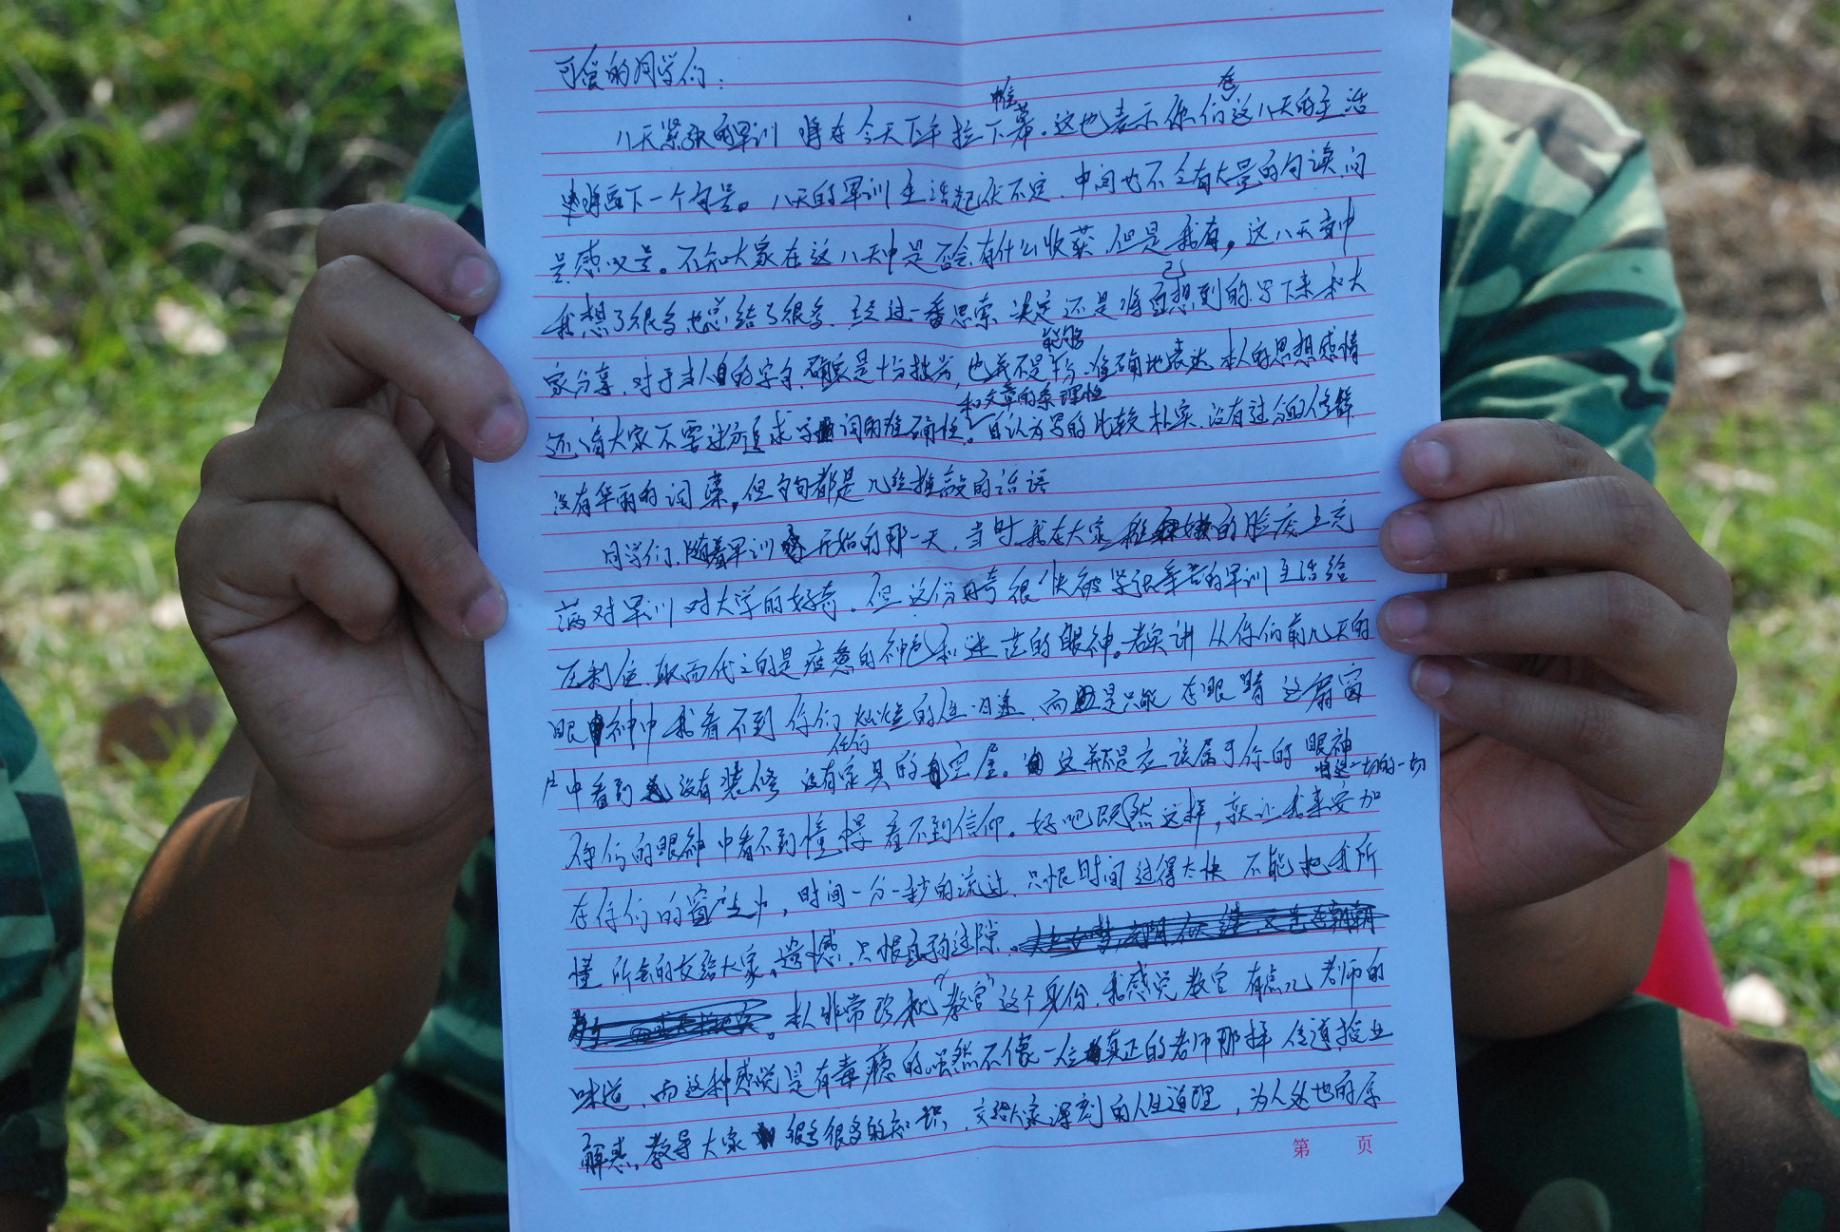 可爱的同学们:
八天紧张的军训将在今天下午拉下帷幕。这也表示你们这八天的生活
将画下一个句号。八天的军训生活起伏不定,中间也不乏有大量的句读,问
号感叹号。不知大家在这八天中是否会有什么收获,但是我有。这八天当中
我想了很多也总结了很多,经过一番思索决定还是将自己想到的写下来和大
家分享,对于本人的字句,确实是十分拙劣,也并不是能够十分准确地表达本人的思想感情
还请大家不要过分追求字词的准确性和文章的条理性。自认为写的比较朴实,没有过分的修辞
没有华丽的词藻,但句句都是几经推敲的话语
同学们,随着军训开始的那一天,当时我在大家稚嫩的脸庞上充
满对军训对大学的好奇,但这份好奇很快被辛苦的军训生活给
压制住,取而代之的是疲惫的神色和迷茫的眼神。老实讲从你们前几天的
眼神中我看不到你们灿烂的,而是只能在眼睛这扇窗
户中看到没有装修没有任何家具的空屋。这并不是应该属于你的眼神
你们的眼神中看不到憧憬看不到信仰。好吧既然这样,就让我来安加
在你们的窗户之中,时间一分一秒的流过,只恨时间过得太快不能把我所
懂所会的交给大家。遗憾,只恨白驹过隙。
本人非常珍视"教官"这个身份,我感觉教官有点儿老师的
味道,而这种感觉是有毒瘾的。虽然不像一位真正的老师那样传道授业
解惑,教导大家很多很多的知识,交给大家深刻的人生道理,为人处世的原
第 页